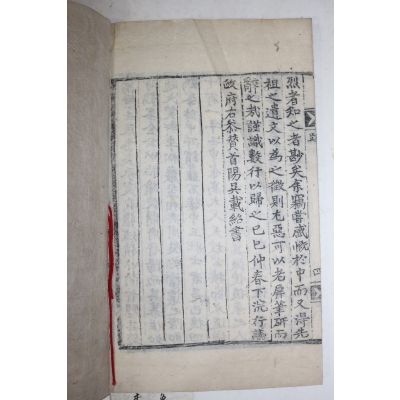 烈者知之者尠矣余竊嘗感慨於中而又得先
祖之遺文以為之徵則尤惡可以老屛筆硏而
辭之哉謹識數行以歸之己巳仲春下浣行議
政府右參贊首陽吳載紹書
四